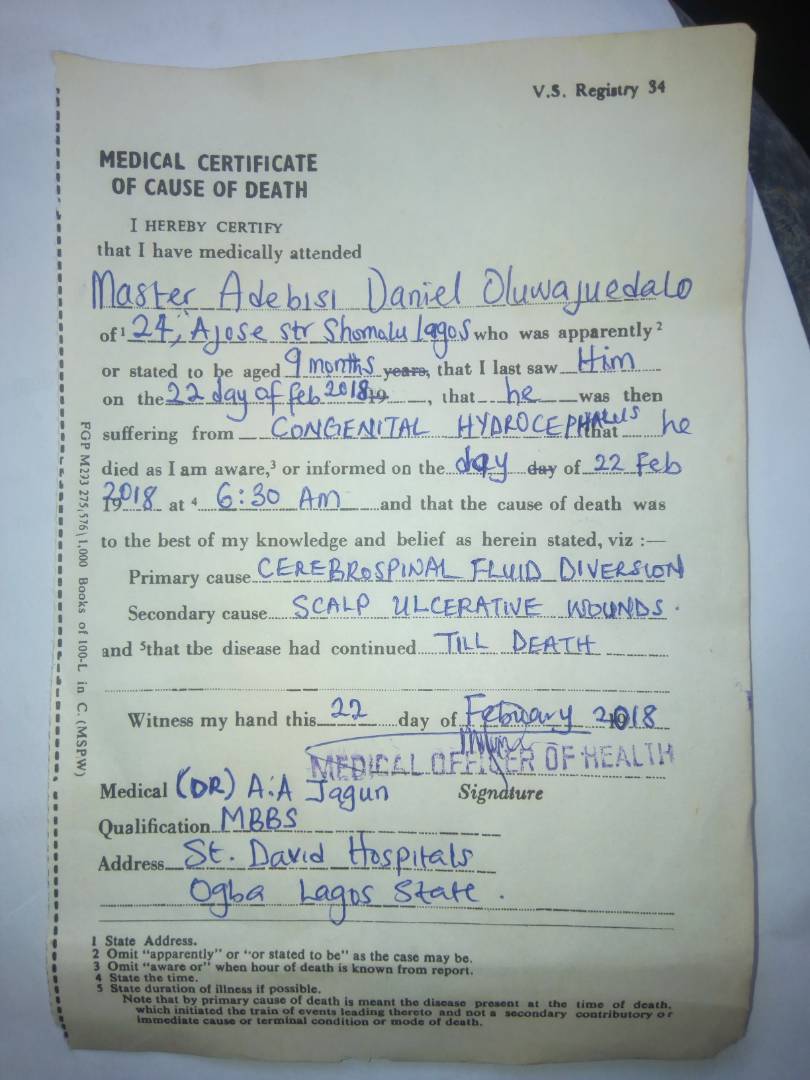 V.S. Registry 34
MEDICAL CERTIFICATE
OF CAUSE OF DEATH
I HEREBY CERTIFY
that I have medically attended
Master Adebisi Daniel Oluwajuedalo
of ¹ 24, Ajose str Shomolu Lagos who was apparently ²
or stated to be aged 9 months years, that I last saw Him
on the 22 day of feb 2018 19, that he was then
suffering from CONGENITAL HYDROCEPHALUS that he
died as I am aware,³ or informed on the day day of 22 Feb
192018 at ⁴ 6:30 AM and that the cause of death was
to the best of my knowledge and belief as herein stated, viz :—
Primary cause CEREBROSPINAL FLUID DIVERSION
Secondary cause SCALP ULCERATIVE WOUNDS.
and ⁵that the disease had continued TILL DEATH
Witness my hand this 22 day of Febuary 2018
MEDICAL OFFICER OF HEALTH
Medical (DR) A.A Jagun Signature
Qualification MBBS
Address St. David Hospitals
Ogba Lagos State.
1 State Address.
2 Omit "apparently" or "or stated to be" as the case may be.
3 Omit "aware or" when hour of death is known from report.
4 State the time.
5 State duration of illness if possible.
Note that by primary cause of death is meant the disease present at the time of death,
which initiated the train of events leading thereto and not a secondary contributory or
immediate cause or terminal condition or mode of death.
FGP M293 275,576\1,000 Books of 100-L in C. (MSPW)